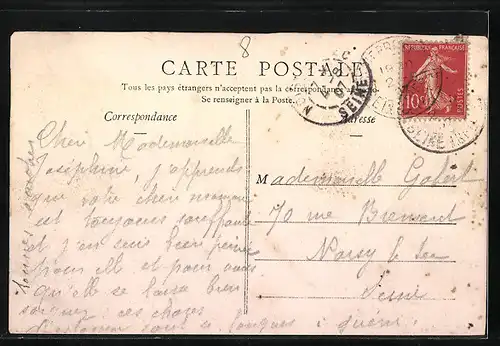 8
CARTE POSTALE
Tous les pays étrangers n'acceptent pas la correspondance au recto
Se renseigner à la Poste.
Correspondance
Adresse
REPUBLIQUE FRANÇAISE
10c
POSTES
SEINE
07
Cher Mademoiselle
Joséphine, j'apprends
que votre cher maman
est toujours souffrante
et j'en suis bien peinée
pour elle et pour vous
qu'elle se laisse bien
soigner, ces choses
sont si longues à guérir
bonnes
Mademoiselle
70 rue Brement
Noisy le Sec
Seine